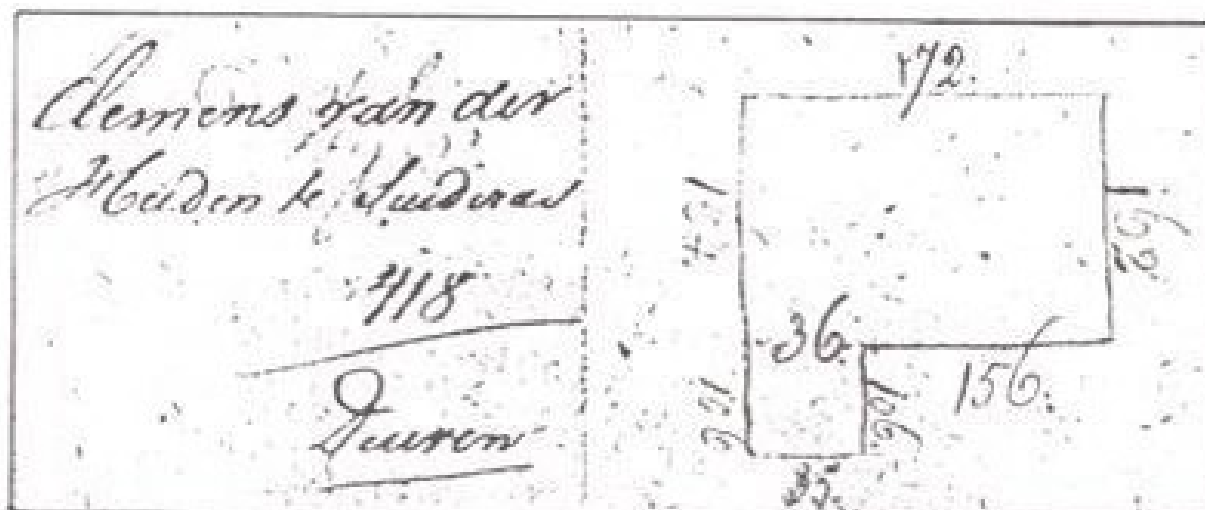 Clemens van der
Heiden te Suideras
418
Duiven
172.
162
36.
156.
106
35.